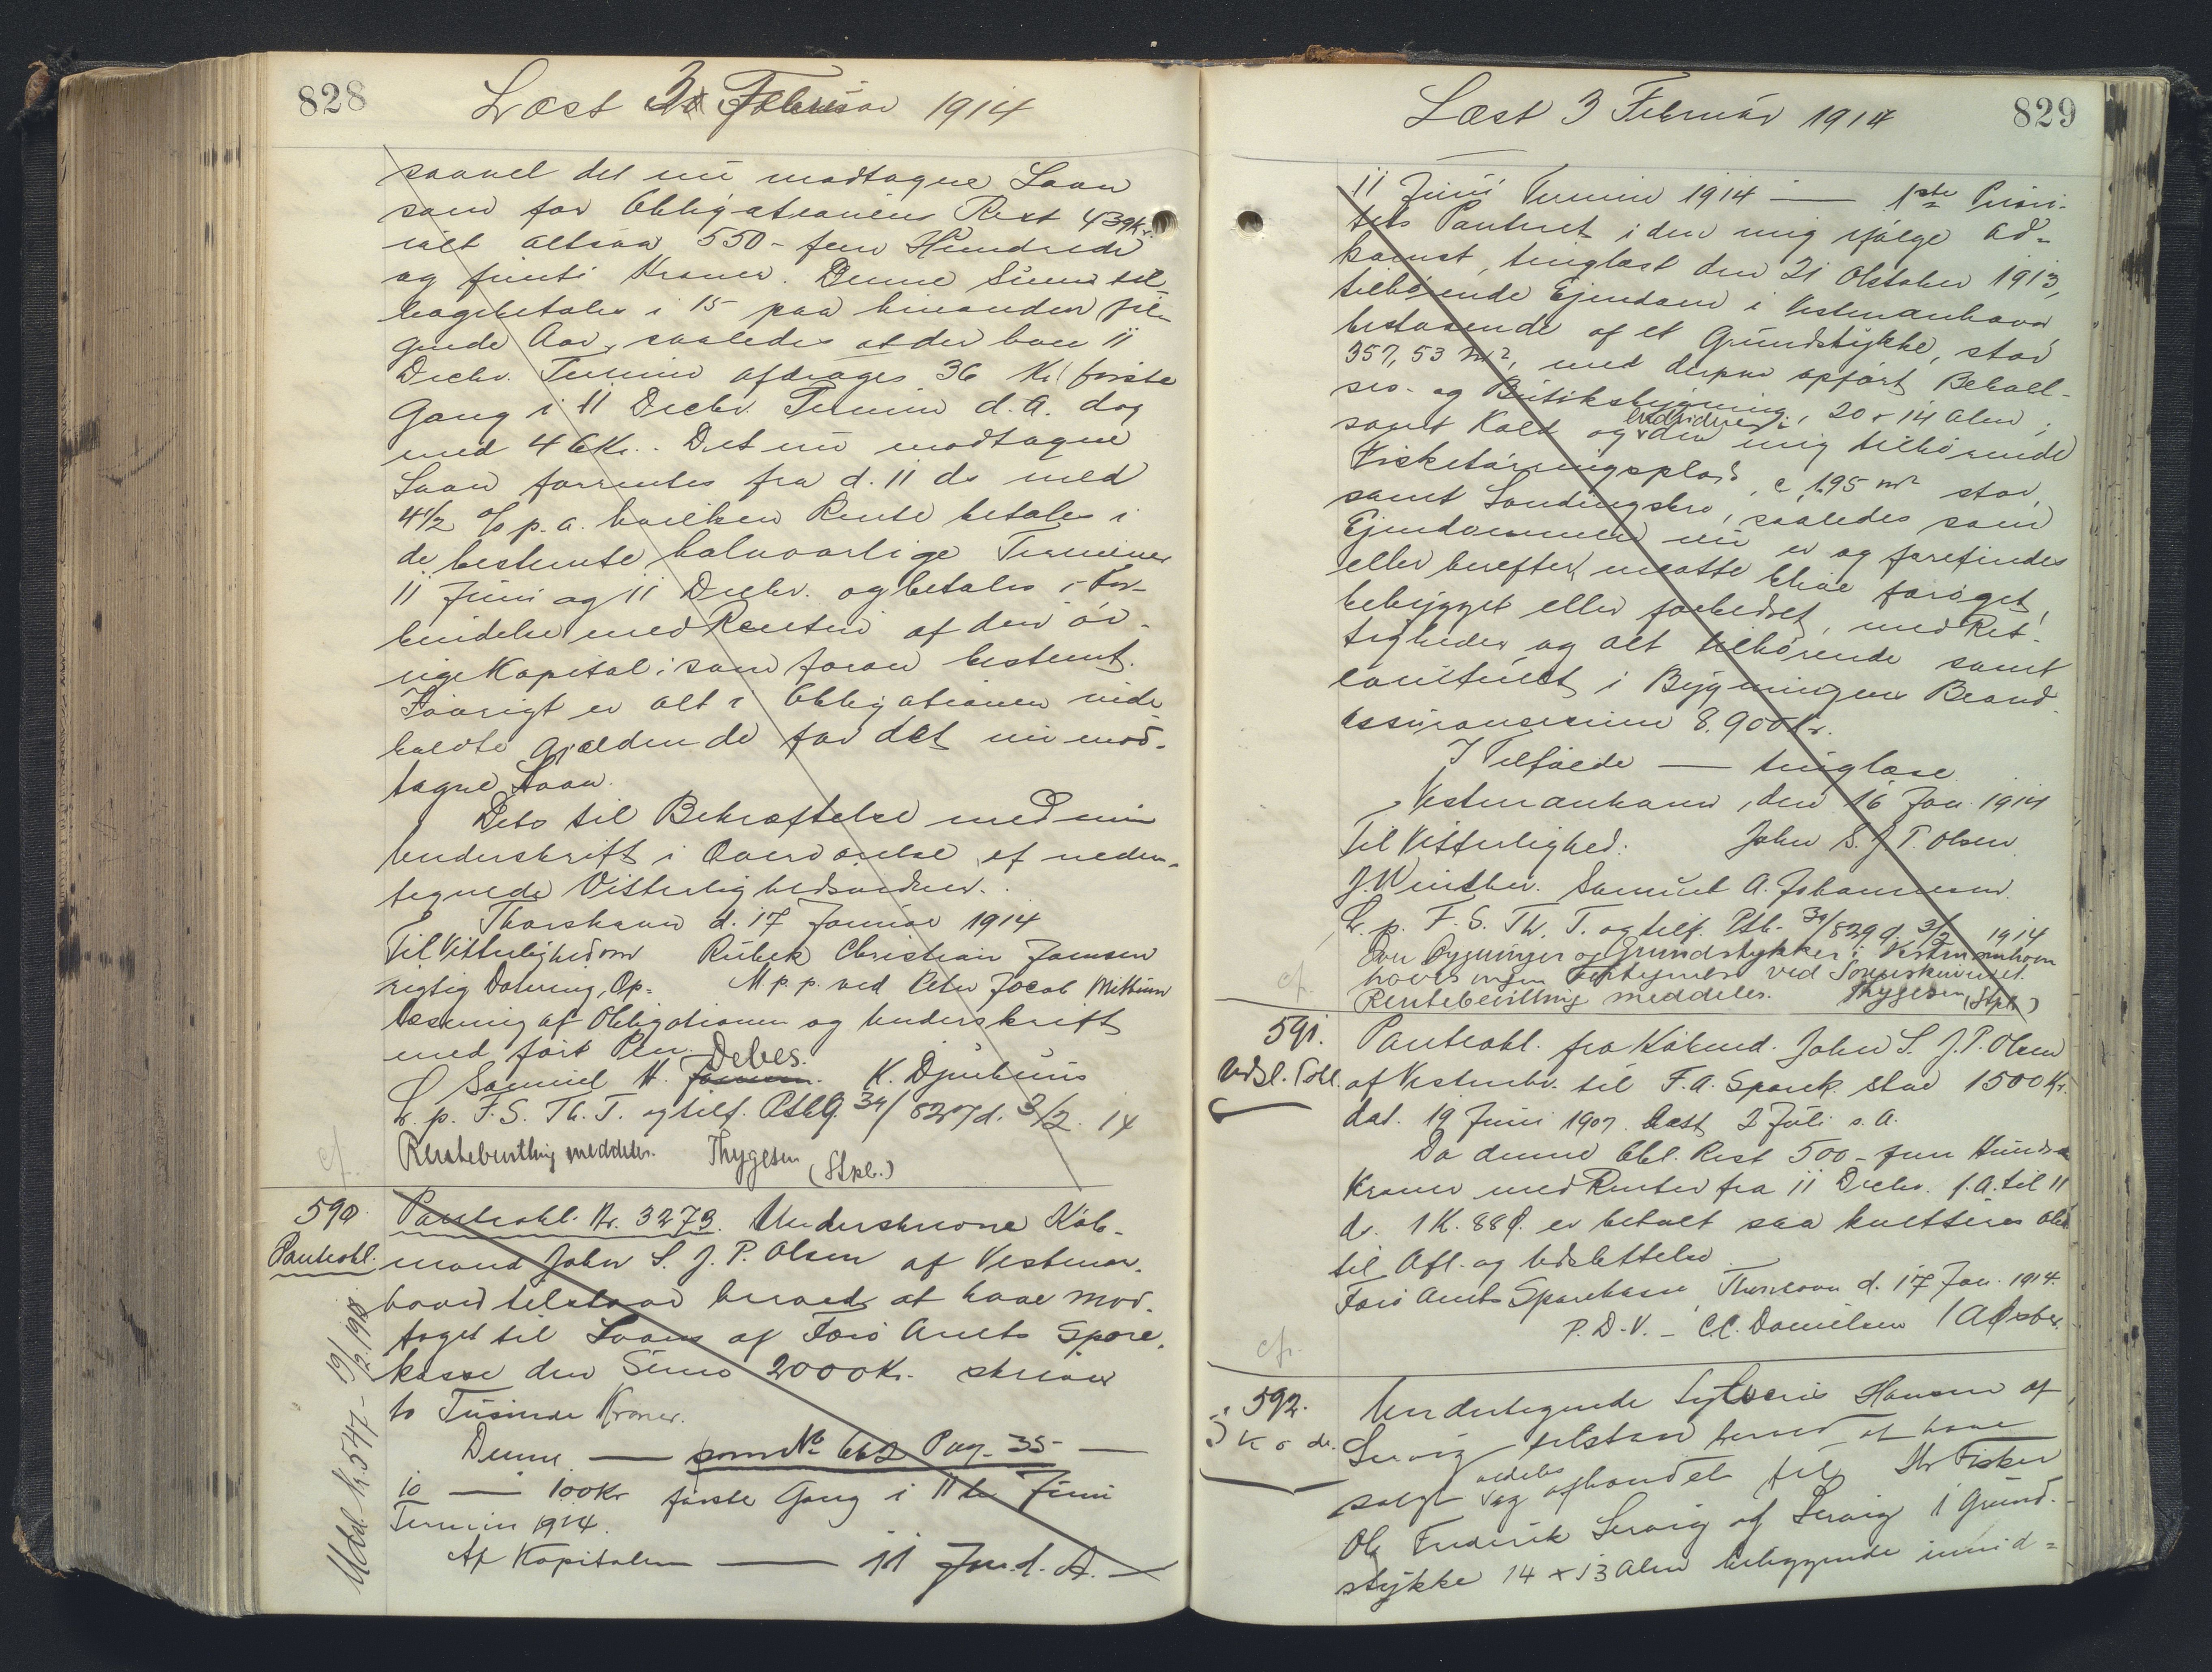 828
Læst 3 Februar 1914
saavel det nu modtagne Laan
som for Obligationens Rest 439 Kr.
ialt altsaa 550 - fem Hundrede
og femti Kroner. Denne Sum til-
bagebetales i 15 paa hinanden føl-
gende Aar, saaledes at der hver 11
Decbr. Termin afdrages 36 Kr. første
Gang i 11 Decbr. Termin d. A. dog
med 46 Kr. Det nu modtagne
Laan forrentes fra d. 11 ds med
4 1/2 % p. a. hvilken Rente betales i
de bestemte halvaarlige Terminer
11 Juni og 11 Decbr. og betales i For-
bindelse med Renten af den øv-
rige Kapital i som foran bestemt.
Iøvrigt er alt i Obligationen inde-
holdte gjældende for det nu mod-
tagne Laan.
Dets til Bekræftelse med min
Underskrift i Overværelse af neden-
tegnede Vitterlighedsvidner.
Thorshavn d. 17 Januar 1914
Til Vitterlighed om Rubek Christian Joensen
rigtig Datering, Op- M. p. p. ved Peter Jocob
læsning af Obligationen og Underskrift
med ført Pen. Debes.
Samuel H. K. Djurhuus
L. p. F. S. Th. T. og tilf. Ptbg 34/827 d. 3/2. 14
cf. Rentebevilling meddeles. Thygesen (Stpl.)
590. Panteobl. Nr. 3273. Underskrevne Køb-
Panteobl. mand John S. J. P. Olsen af Vestman-
havn tilstaar herved at have mod-
taget til Laans af Færø Amts Spare-
kasse den Sum 2000 Kr. skriver
to Tusinde Kroner.
Denne — som № 662 Pag. 35 —
10 — 100 Kr første Gang i 11te Juni
Termin 1914.
Af Kapitalen — 11 Jan. d. A. —
829
Læst 3 Februar 1914
11 Juni Termin 1914 — 1ste Priori-
tets Panteret i den mig ifølge Ad-
komst, tinglæst den 21 Oktober 1913,
tilhørende Ejendom i Vestmanhavn
bestaaende af et Grundstykke, stor
357,53 m², med derpaa opført Beboel-
ses- og Butiksbygning, 20 x 14 Alen,
samt Kald og endvidere i den mig tilhørende
Fisketørringsplads, c. 195 m² stor,
samt Landingsbro, saaledes som
Ejendommen nu er og forefindes
eller herefter maatte blive forøget,
bebygget eller forbedret, med Ret-
tigheder og alt tilhørende samt
eventuelt i Bygningens Brand-
assurancesum 8.900 Kr.
I Tilfælde — tinglæse
Vestmanhavn, den 16 Jan. 1914
Til Vitterlighed: John S. J. P. Olsen.
J. Winther. Samuel A. Johannesen.
L. p. F. S. Th. T. og tilf. Ptb. 34/829 d. 3/2 1914
Over Bygninger og Grundstykker i Vestmanhavn
haves ingen Fortegnelse ved Sorenskriveriet.
cf. Rentebevilling meddeles. Thygesen (Stpl.)
591. Panteobl. fra Købmd. John S. J. P. Olsen
Udsl. Obl. af Vestmhv. til F. A. Spark. stor 1500 Kr.
dat. 19 Juni 1907. læst 2 Juli s. A.
Da denne Obl. Rest 500 - fem Hundre
Kroner med Renter fra 11 Decbr. f. A. til 11
ds. 1 K. 88 Ø. er betalt saa kvitteres Obl.
til Afl. og Udslettelse.
Færø Amts Sparekasse, Thorshavn d. 17 Jan. 1914.
P. D. V. - C. C. Danielsen
cfr.
592. Undertegnede Hansen af
Skøde. Servig tilstaar herved at have
solgt aldeles og afhændet til Hr Fisker
Ole Frederik Servig af Servig 1 Grund-
stykke 14 x 13 Alen